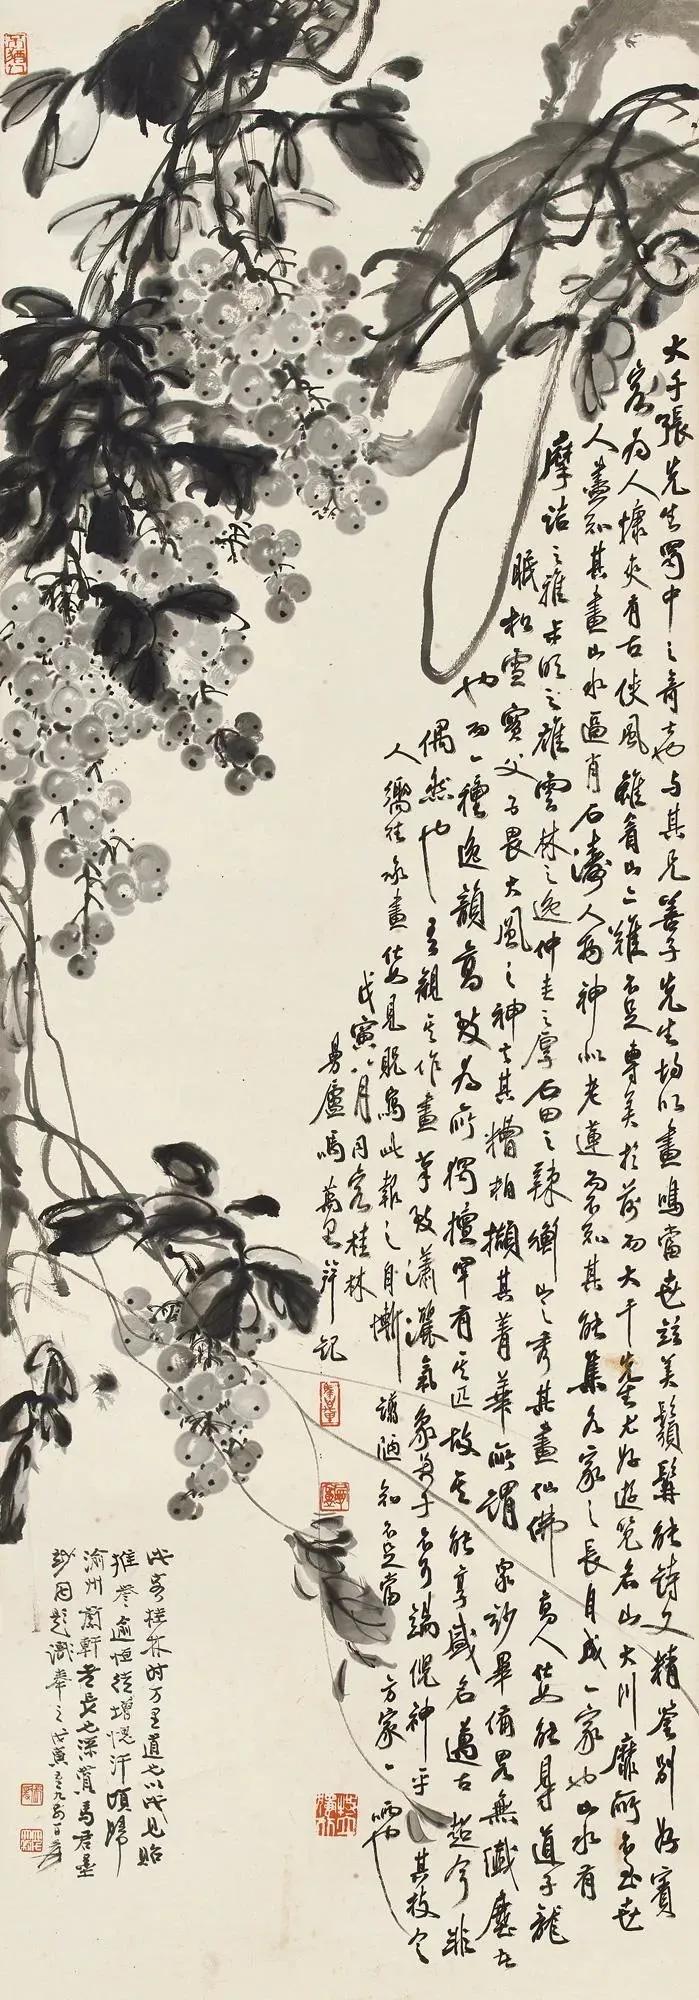 大千張先生蜀中之奇士也与其兄善子先生均以畫鳴當世茲美鬚髯能詩文精鉴别好賓
客为人慷爽有古俠風難首山二難不足專美於前而大千先生尤好遊覽名山大川靡所不至世
人盡知其畫山水逼肖石濤人物神似老蓮而不知其能集各家之長自成一家也山水有
摩詰之雅步明之雄雲林之逸仲圭之厚石田之辣衡山之秀其畫仙佛高人仕女能尋道子龍
眠松雪實父子畏大風之神去其糟粕擷其菁華所謂眾妙畢備畧無纖塵者
也而一種逸韻高致为所獨擅罕有其匹故其能享盛名邁古超今非
偶然也吾觀其作畫筆致瀟灑氣象萬千不可端倪神乎其技令
人嚮往承畫仕女見貺寫此報之自慚譾陋知不足當方家一哂也
戊寅八月同客桂林
曼廬馬萬里并記
此客桂林时万里道兄以此見貽
推譽逾恒徒增愧汗頃歸
渝州 軒老長兄深賞馬君墨
妙因題識奉之戊寅 九 日爰